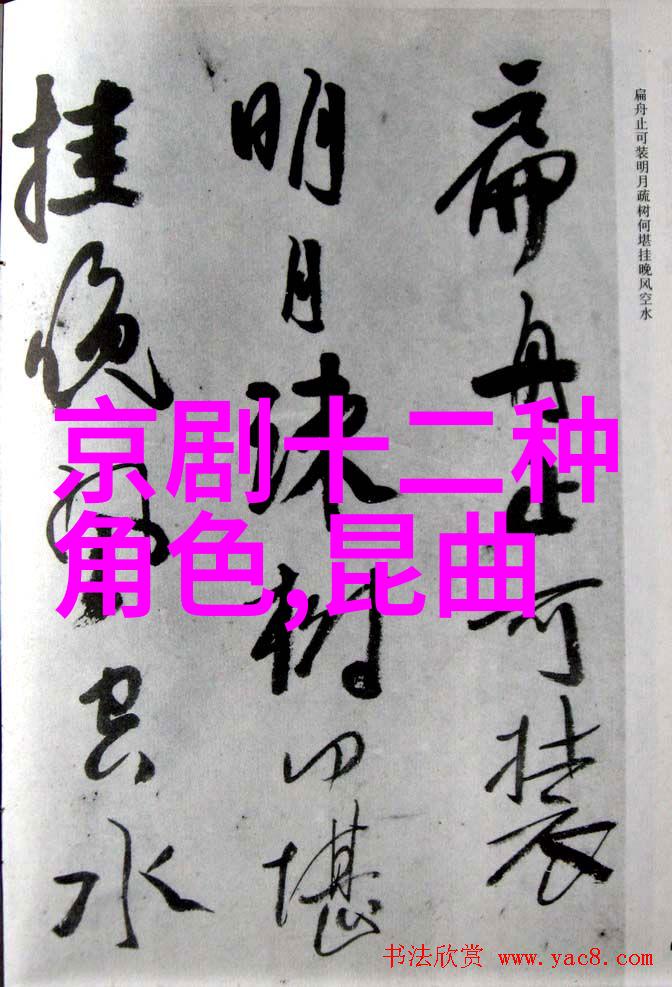 扁舟止可装
明月疎树何堪
挂晚风空水
扁舟止可装明月疏树何堪挂晚风空水
京剧十二种
角色,昆曲
书法欣赏 www.yac8.com